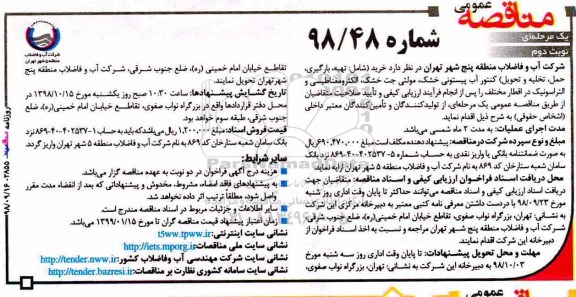 مناقصه عمومی
یک مرحله‌ای
نوبت دوم
شماره ۹۸/۴۸
شرکت آب و فاضلاب
منطقه پنج شهر تهران
شرکت آب و فاضلاب منطقه پنج شهر تهران در نظر دارد خرید (شامل: تهیه، بارگیری،
حمل، تخلیه و تحویل) کنتور آب پیستونی خشک، مولتی جت خشک، الکترومغناطیس و
التراسونیک در اقطار مختلف را پس از انجام فرآیند ارزیابی کیفی و تأیید صلاحیت متقاضیان
از طریق مناقصه عمومی یک مرحله‌ای، از تولیدکنندگان و تأمین‌کنندگان معتبر داخلی
(اشخاص حقوقی) به شرح ذیل اقدام نماید.
مدت اجرای عملیات: به مدت ۲ ماه شمسی می‌باشد.
مبلغ و نوع سپرده شرکت در مناقصه: پیشنهاد دهنده مکلف است مبلغ ۶۹۰,۴۷۰,۰۰۰ ریال
به صورت ضمانتنامه بانکی یا واریز نقدی به حساب شماره ۵-۴۰۲۵۳۷-۴۰-۸۶۹ نزد بانک
سامان شعبه ستارخان کد ۸۶۹ به نام شرکت آب و فاضلاب منطقه ۵ شهر تهران ارایه نماید.
محل دریافت اسناد فراخوان ارزیابی کیفی و اسناد مناقصه: متقاضیان جهت
دریافت اسناد ارزیابی کیفی و اسناد مناقصه می‌توانند حداکثر تا پایان وقت اداری روز شنبه
مورخ ۹۸/۰۹/۲۳ با در دست داشتن معرفی نامه کتبی معتبر به دبیرخانه مرکزی این شرکت
به نشانی: تهران، بزرگراه نواب صفوی، تقاطع خیابان امام خمینی (ره)، ضلع جنوب شرقی،
شرکت آب و فاضلاب منطقه پنج شهر تهران مراجعه و نسبت به اخذ اسناد فراخوان از
دبیرخانه این شرکت اقدام نمایند.
مهلت و محل تحویل پیشنهادات: تا پایان وقت اداری روز سه شنبه مورخ
۹۸/۱۰/۰۳ به دبیرخانه این شرکت به نشانی: تهران، بزرگراه نواب صفوی،
تقاطع خیابان امام خمینی (ره)، ضلع جنوب شرقی، شرکت آب و فاضلاب منطقه پنج
شهر تهران تحویل نمایند.
تاریخ گشایش پیشنهادها: ساعت ۱۰:۳۰ صبح روز یکشنبه مورخ ۱۳۹۸/۱۰/۱۵ در
محل دفتر قراردادها واقع در بزرگراه نواب صفوی، تقاطع خیابان امام خمینی(ره)، ضلع
جنوب شرقی، طبقه سوم خواهد بود.
قیمت فروش اسناد: مبلغ ۱,۲۰۰,۰۰۰ ریال می‌باشد که باید به حساب ۱-۴۰۲۵۳۷-۴۰-۸۶۹ نزد
بانک سامان شعبه ستارخان کد ۸۶۹ به نام شرکت آب و فاضلاب منطقه ۵ شهر تهران واریز گردد.
سایر شرایط:
هزینه درج آگهی فراخوان در دو نوبت به عهده مناقصه گزار می‌باشد.
به پیشنهادهای فاقد امضاء، مشروط، مخدوش و پیشنهاداتی که بعد از انقضاء مدت مقرر
واصل شود، مطلقاً ترتیب اثر داده نخواهد شد.
سایر اطلاعات و جزئیات مربوط در اسناد مناقصه مندرج است.
زمان اعتبار پیشنهاد قیمت مناقصه گران تا مورخ ۱۳۹۹/۰۱/۱۵ می‌باشد.
نشانی سایت اینترنتی: t5ww.tpww.ir
نشانی سایت ملی مناقصات: http://iets.mporg.ir
نشانی سایت شرکت مهندسی آب وفاضلاب کشور: http://tender.nww.ir
نشانی سایت سامانه کشوری نظارت بر مناقصات: http://tender.bazresi.ir